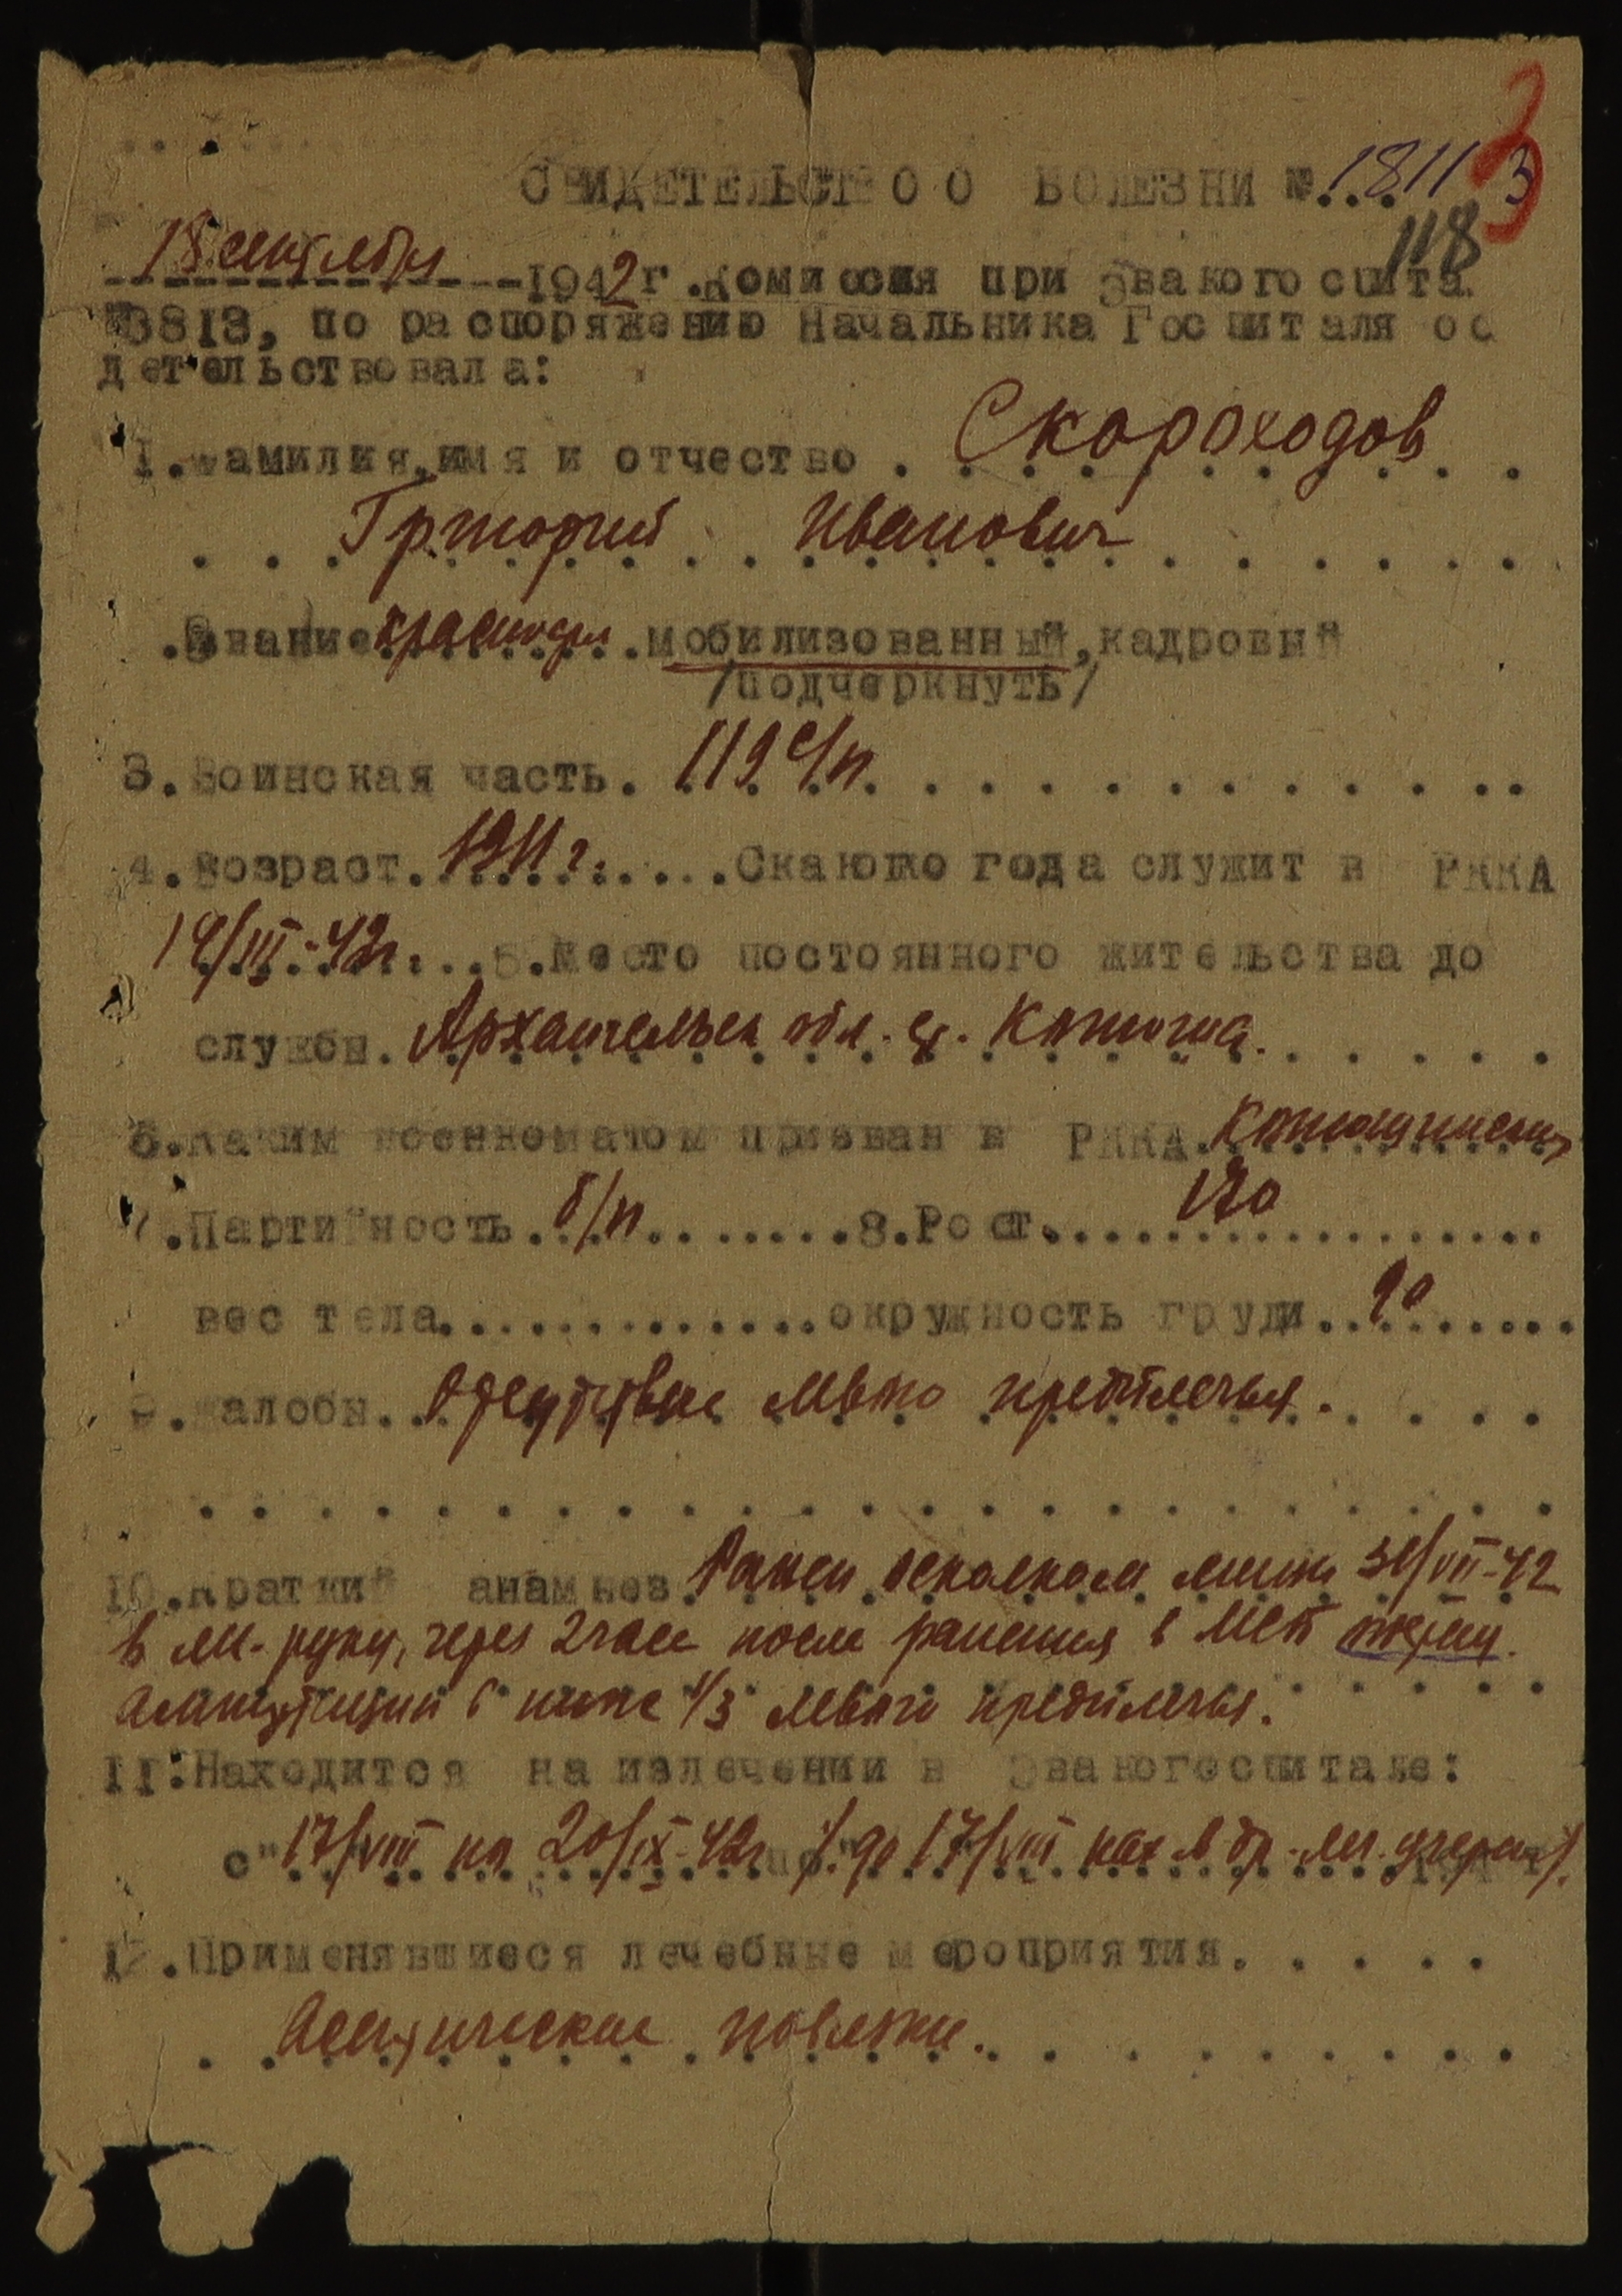 СВИДЕТЕЛЬСТВО О БОЛЕЗНИ №...1811 3
118
18 сентября 1942 г. Комиссия при Эвакогоспита
№3813, по распоряжению Начальника Госпиталя ос
детельствовала:
1. Фамилия, имя и отчество . Скороходов
Григорий Иванович
. Звание красноарм. мобилизованный, кадровый
/подчеркнуть/
3. Воинская часть. 119 с/п
4. Возраст. 1911 г. Скакого года служит в РККА
14/III-42г. 5. Место постоянного жительства до
службы. Архангельск обл. ст. Коноша.
6. Каким военкоматом призван в РККА. Коношинским
7. Партийность. б/п 8. Рост. 170
вес тела окружность груди. 90
9. Жалобы. Отсутствие левого предплечья.
10. Краткий анамнез. Ранен осколком мины 30/VII-42
в лев. руку, через 2 часа после ранения в МСБ
ампутации в ниже 1/3 левого предплечья.
11. Находится на излечении в Эвакогоспитале:
с" 17/VIII по 20/IX-42г /. до 17/VIII нах в др. леч. учережд/.
12. Применявшиеся лечебные мероприятия.
Асептические повязки.